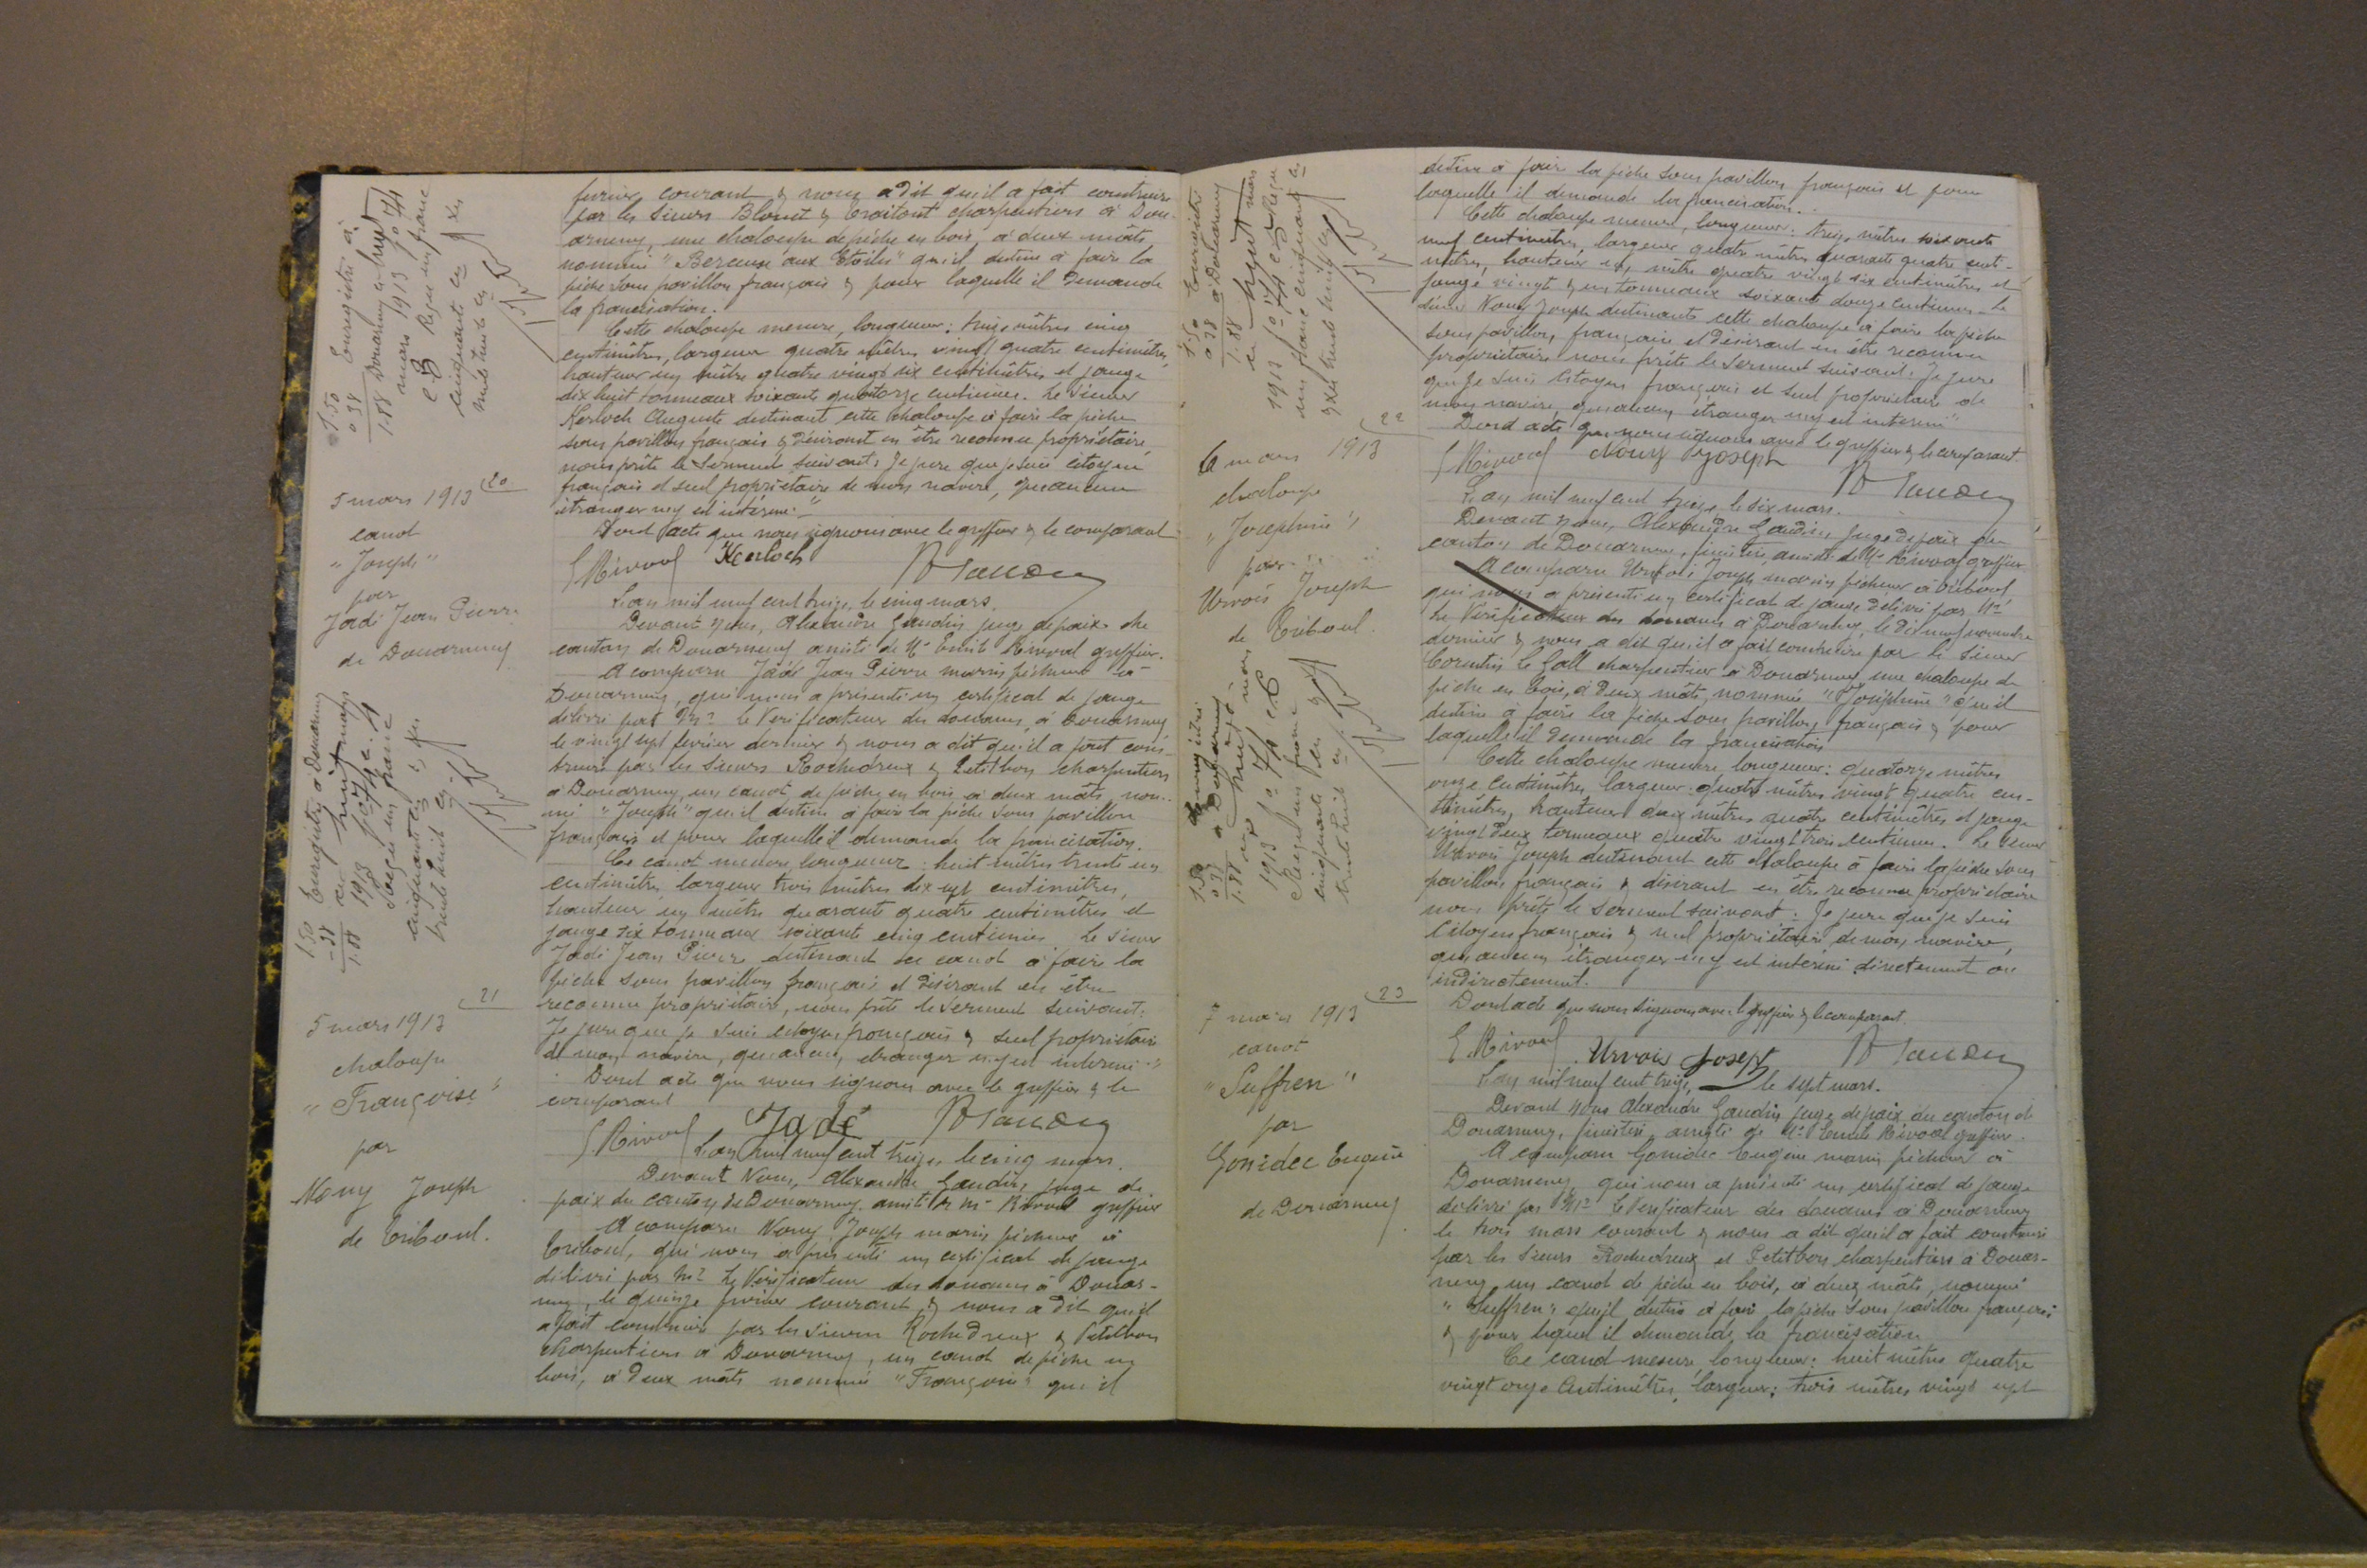 février courant & nous a dit qu'il a fait construire
par les sieurs Blouet & charpentiers à Dou-
arnenez, une chaloupe de pêche en bois, à deux mâts,
nommée "Berceuse aux Etoiles" qu'il destine à faire la
pêche sous pavillon français & pour laquelle il demande
la francisation.
Cette chaloupe mesure, longueur: treize mètres cinq
centimètres, largeur quatre mètres vingt quatre centimètres,
hauteur un mètre quatre vingt six centimètres et jauge
dix huit tonneaux soixante quatorze centièmes. Le sieur
Kerloch Auguste destinant cette chaloupe à faire la pêche
sous pavillon français & désirant en être reconnu propriétaire,
nous prête le serment suivant: Je jure que je suis citoyen
français et seul propriétaire de mon navire, qu'aucun
étranger n'y est intéressé."
Dont acte que nous signons avec le greffier & le comparant
E Rivoal Kerloch A Gaudin
1.50
0 38
1.88
Enregistré à
Douarnenez le huit
mars 1913 fo 74
c 3 Reçu un franc
cinquante ces & Xes
mil trente ces
20
5 mars 1913
canot
"Joseph"
par
Jadé Jean Pierre
de Douarnenez
L'an mil neuf cent treize, le cinq mars.
Devant Nous, Alexandre Gaudin juge de paix du
canton de Douarnenez assisté de Me Emile Rivoal greffier.
A comparu Jadé Jean Pierre marin pêcheur à
Douarnenez, qui nous a présenté un certificat de jauge
délivré par Mr le Vérificateur des douanes, à Douarnenez
le vingt sept février dernier & nous a dit qu'il a fait cons-
truire par les sieurs Rochedreux & Petitbon charpentiers
à Douarnenez, un canot de pêche en bois à deux mâts, nom-
mé "Joseph" qu'il destine à faire la pêche sous pavillon
français et pour laquelle il demande la francisation.
Ce canot mesure, longueur: huit mètres trente un
centimètres, largeur trois mètres dix sept centimètres,
hauteur un mètre quarante quatre centimètres et
jauge six tonneaux soixante cinq centièmes. Le sieur
Jadé Jean Pierre destinant ce canot à faire la
pêche sous pavillon français et désirant en être
reconnu propriétaire, nous prête le serment suivant:
Je jure que je suis citoyen français & seul propriétaire
de mon navire, qu'aucun étranger n'y est intéressé."
Dont acte que nous signons avec le greffier & le
comparant
E. Rivoal Jadé A Gaudin
1.50
- 38
1.88
Enregistré à Douarnenez
le huit mars
1913 fo 74 c. 4
Reçu un franc
cinquante ces & Xes
trente huit ces
21
5 mars 1913
chaloupe
"Françoise"
par
Nouy Joseph
de Tréboul.
L'an mil neuf cent treize, le cinq mars.
Devant Nous, Alexandre Gaudin, juge de
paix du canton de Douarnenez assisté de Me Rivoal greffier
A comparu Nouy Joseph marin pêcheur à
Tréboul, qui nous a présenté un certificat de jauge
délivré par Mr le Vérificateur des douanes à Douar-
nenez, le quinze février courant & nous a dit qu'il
a fait construire par les sieurs Rochedreux & Petitbon
charpentiers à Douarnenez, un canot de pêche en
bois, à deux mâts nommé "Françoise" qu'il
destine à faire la pêche sous pavillon français et pour
laquelle il demande la francisation.
Cette chaloupe mesure, longueur: treize mètres soixante
neuf centimètres, largeur quatre mètres quarante quatre centi-
mètres, hauteur un mètre quatre vingt six centimètres et
jauge vingt & un tonneaux soixante douze centièmes. Le
sieur Nouy Joseph destinant cette chaloupe à faire la pêche
sous pavillon français et désirant en être reconnu
propriétaire nous prête le serment suivant: Je jure
que je suis citoyen français et seul propriétaire de
mon navire, qu'aucun étranger n'y est intéressé"
Dont acte que nous signons avec le greffier & le comparant.
E Rivoal Nouy Joseph A Gaudin
1.50
0 38
1.88
Enregistré
à Douarnenez
le huit mars
1913 fo 74 c 5 Reçu
un franc cinquante ces
& Xes trente huit ces
22
6 mars 1913
chaloupe
"Joséphine"
par
Urvois Joseph
de Tréboul.
L'an mil neuf cent treize, le six mars.
Devant Nous, Alexandre Gaudin, juge de paix du
canton de Douarnenez, finistère, assisté de Me Rivoal greffier
A comparu Urvois Joseph marin pêcheur à Tréboul,
qui nous a présenté un certificat de jauge délivré par Mr
le Vérificateur des douanes à Douarnenez, le dix neuf novembre
dernier & nous a dit qu'il a fait construire par le sieur
Corentin Le Gall charpentier à Douarnenez une chaloupe de
pêche en bois, à deux mâts, nommée "Joséphine" qu'il
destine à faire la pêche sous pavillon français & pour
laquelle il demande la francisation
Cette chaloupe mesure longueur: quatorze mètres
onze centimètres, largeur: quatre mètres vingt quatre cen-
timètres, hauteur deux mètres quatre centimètres et jauge
vingt deux tonneaux quatre vingt trois centièmes. Le sieur
Urvois Joseph destinant cette chaloupe à faire la pêche sous
pavillon français & désirant en être reconnu propriétaire
nous prête le serment suivant: Je jure que je suis
citoyen français & seul propriétaire de mon navire,
qu'aucun étranger n'y est intéressé directement ou
indirectement.
Dont acte que nous signons avec le greffier & le comparant.
E. Rivoal Urvois Joseph A Gaudin
1.50
0 38
1.88
Enregistré
à Douarnenez
le huit mars
1913 fo 74 c 6
Reçu un franc
cinquante ces & Xes
trente huit ces
23
7 mars 1913
canot
"Suffren"
par
Gonidec Eugène
de Douarnenez
L'an mil neuf cent treize, le sept mars.
Devant Nous Alexandre Gaudin juge de paix du canton de
Douarnenez, finistère, assisté de Me Emile Rivoal greffier.
A comparu Gonidec Eugène marin pêcheur à
Douarnenez, qui nous a présenté un certificat de jauge
délivré par Mr le Vérificateur des douanes à Douarnenez
le trois mars courant & nous a dit qu'il a fait construire
par les sieurs Rochedreux et Petitbon charpentiers à Douar-
nenez, un canot de pêche en bois, à deux mâts, nommé
"Suffren" qu'il destine à faire la pêche sous pavillon français
& pour lequel il demande la francisation
Ce canot mesure, longueur: huit mètres quatre
vingt onze centimètres, largeur: trois mètres vingt sept